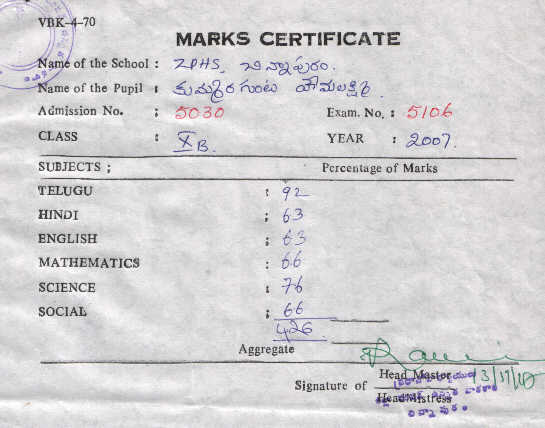 VBK-4-70
MARKS CERTIFICATE
Name of the School : ZPHS, చిన్నాపురం.
Name of the Pupil : కుమ్మరిగుంట
Admission No. : 5030 Exam. No. : 5106
CLASS : X B. YEAR : 2007.
SUBJECTS ; Percentage of Marks
TELUGU : 92
HINDI ; 63
ENGLISH ; 63
MATHEMATICS : 66
SCIENCE : 76
SOCIAL ; 66
426
Aggregate
Signature of Head Master
Head Mistress